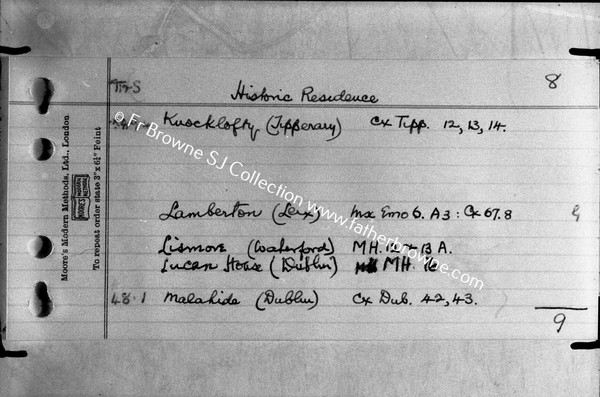 T+S Historic Residence 8
Knocklofty (Tipperary) Cx Tipp. 12, 13, 14.
Lamberton (Leix) Mx Emo 6. A3 : Cx 67.8
Lismore (Waterford) MH. 12 + 13 A.
Lucan House (Dublin) MH. 16
48.1 Malahide (Dublin) Cx Dub. 42, 43.
9
Moore's Modern Methods, Ltd., London.
To repeat order state 3" x 6¼" Feint
© Fr Browne SJ Collection www.fatherbrowne.com